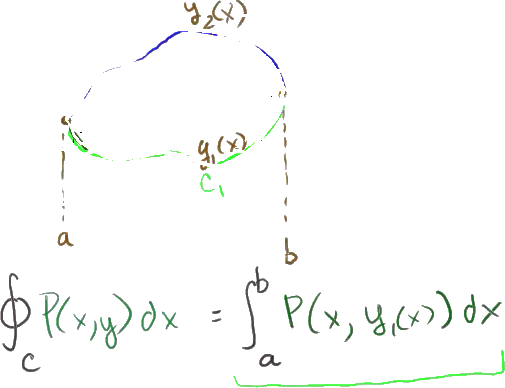 y₂(x)
y₁(x)
C₁
a
b
∮_C P(x,y) dx = ∫_a^b P(x, y₁(x)) dx